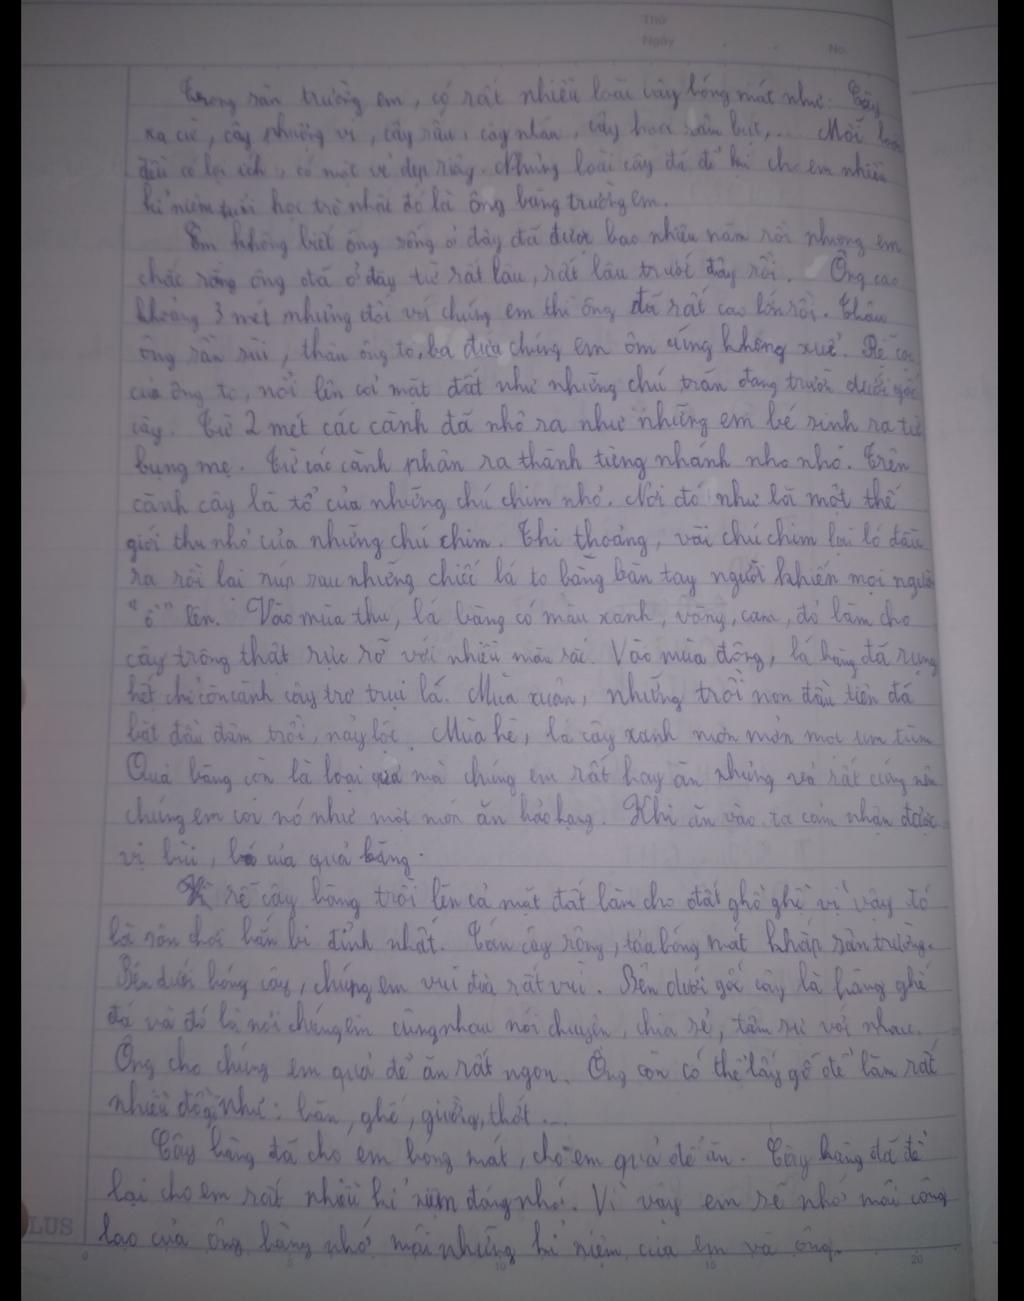 Thứ
Ngày No.
Trong sân trường em, có rất nhiều loài cây bóng mát như: Cây
xà cừ, cây phượng vĩ, cây sấu, cây nhãn, cây hoa râm bụt,... Mỗi loài
đều có lợi ích, có một vẻ đẹp riêng. Những loài cây đã để lại cho em nhiều
kỉ niệm tuổi học trò nhất đó là ông bàng trường em.
Em không biết ông sống ở đây đã được bao nhiêu năm rồi nhưng em
chắc rằng ông đã ở đây từ rất lâu, rất lâu trước đây rồi. Ông cao
khoảng 3 mét nhưng đối với chúng em thì ông đã rất cao lớn rồi. Thân
ông sần sùi, thân ông to, ba đứa chúng em ôm cũng không xuể. Rễ cây
của ông to, nổi lên cả mặt đất như những chú trăn đang trườn dưới gốc
cây. Từ 2 mét các cành đã nhô ra như những em bé sinh ra từ
bụng mẹ. Từ các cành phân ra thành từng nhánh nho nhỏ. Trên
cành cây là tổ của những chú chim nhỏ. Nơi đó như là một thế
giới thu nhỏ của những chú chim. Thi thoảng, vài chú chim lại ló đầu
ra rồi lại núp sau những chiếc lá to bằng bàn tay người khiến mọi người
"ồ" lên. Vào mùa thu, lá bàng có màu xanh, vàng, cam, đỏ làm cho
cây trông thật rực rỡ với nhiều màu sắc. Vào mùa đông, lá bàng đã rụng
hết chỉ còn cành cây trơ trụi lá. Mùa xuân, những trồi non đầu tiên đã
bắt đầu đâm trồi, nảy lộc. Mùa hè, lá cây xanh mơn mởn mọc um tùm
Quả bàng còn là loại quả mà chúng em rất hay ăn nhưng vỏ rất cứng nên
chúng em coi nó như một món ăn hảo hạng. Khi ăn vào ta cảm nhận được
vị bùi, của quả bàng.
rễ cây bàng trồi lên cả mặt đất làm cho đất ghồ ghề vì vậy đó
là sân chơi bắn bi đỉnh nhất. Tán cây rộng, tỏa bóng mát khắp sân trường.
Bên dưới bóng cây, chúng em vui đùa rất vui. Bên dưới gốc cây là hàng ghế
đá và đó là nơi chúng em cùng nhau nói chuyện, chia sẻ, tâm sự với nhau.
Ông cho chúng em quả để ăn rất ngon. Ông còn có thể lấy gỗ để làm rất
nhiều đồ gỗ như: bàn, ghế, giường, thớt ...
Cây bàng đã cho em bóng mát, cho em quả để ăn. Cây bàng đã để
lại cho em rất nhiều kỉ niệm đáng nhớ. Vì vậy em sẽ nhớ mãi công
lao của ông bàng nhớ mãi những kỉ niệm của em và ông.
LUS
0 5 10 15 20